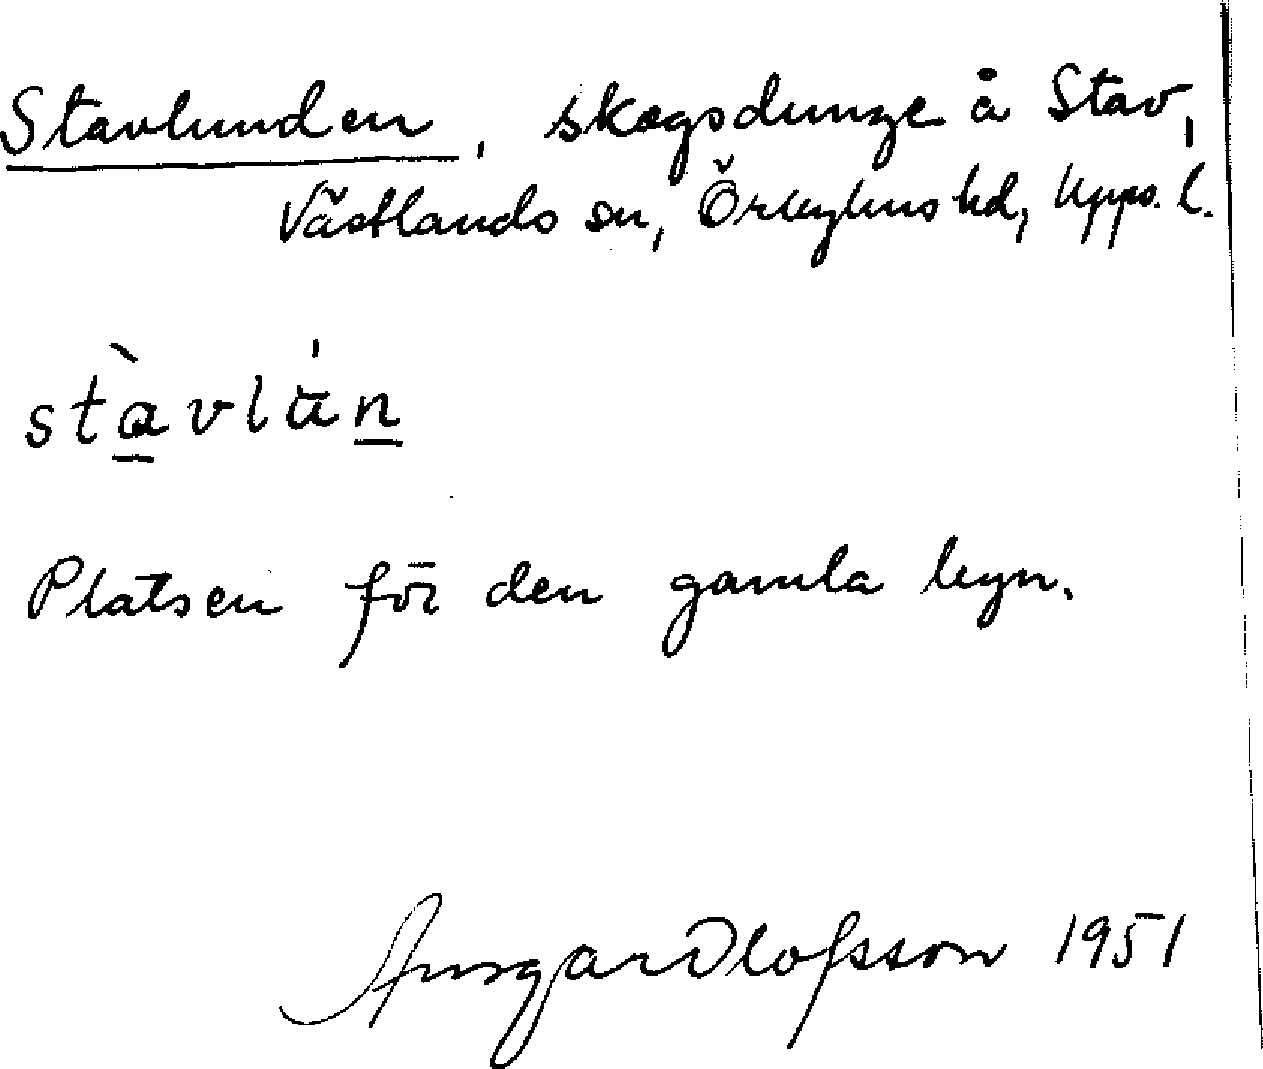 Stavlunden, skogsdunge å Stav,
Västlands sn, Örbyhus hd, Upps. l.
stàvlun
Platsen för den gamla byn.
Ansgar Olofsson 1951